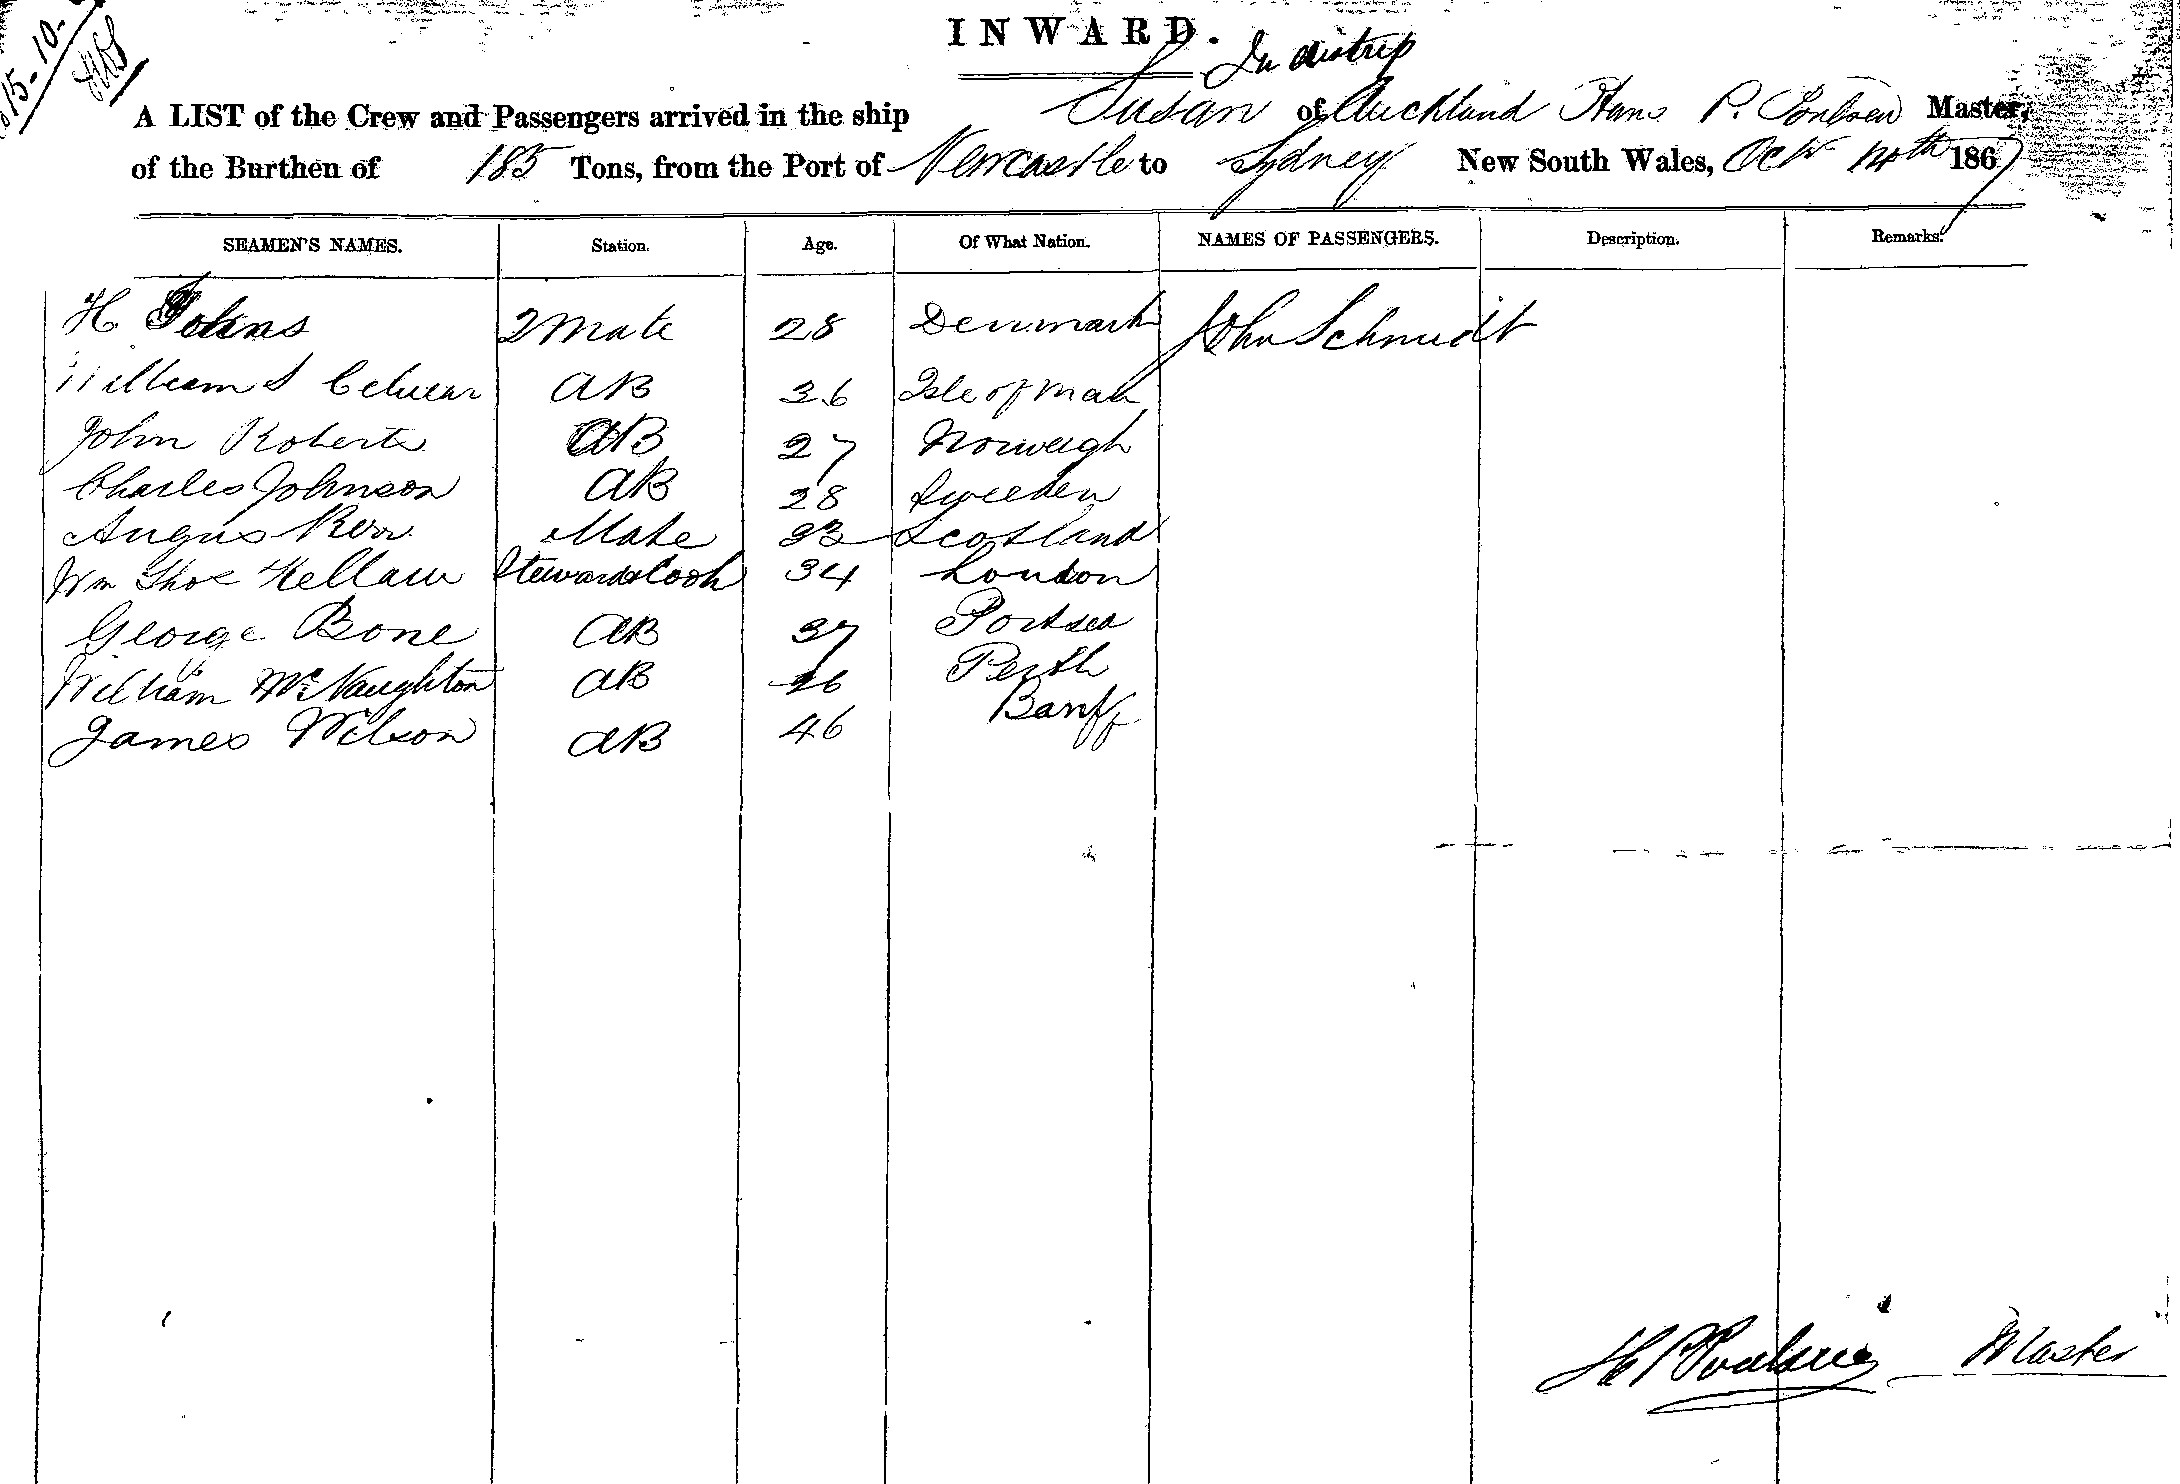 15-10-
INWARD.
In distress
A LIST of the Crew and Passengers arrived in the ship Susan of Auckland Hans P. Poulsen Master,
of the Burthen of 185 Tons, from the Port of Newcastle to Sydney New South Wales, Octr 14th 1867
SEAMEN'S NAMES. Station. Age. Of What Nation. NAMES OF PASSENGERS. Description. Remarks.
H Johns 2 Mate 28 Denmark John Schmidt
William S AB 36 Isle of Man
John Roberts AB 27 Norweigh
Charles Johnson AB 28 Sweeden
Angus Kerr Mate 33 Scotland
Wm Thos Kellaw Steward & Cook 34 London
George Bone AB 37 Portsea
William McNaughton AB 26 Perth
James Wilson AB 46 Banff
H P Poulsen Master